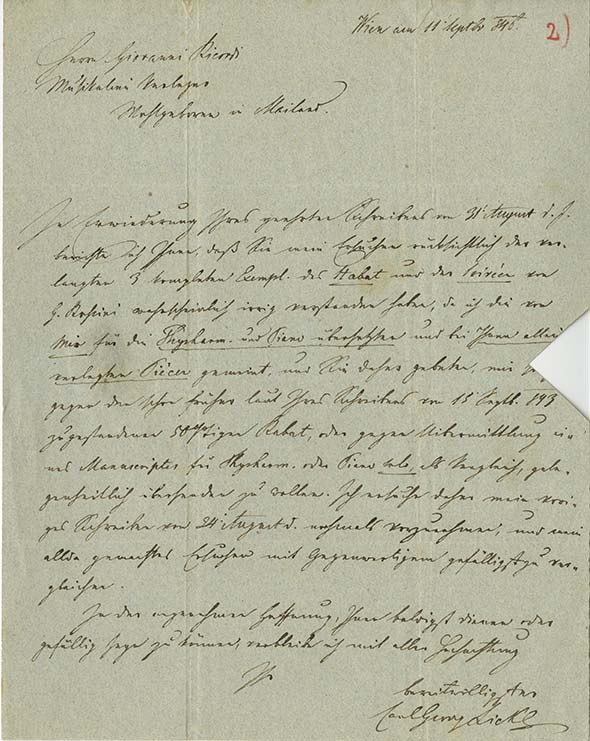 Wien am 11 Septbr 846.
2)
Herrn Giovanni Ricordi
Musikalien Verleger
Wohlgeboren in Mailand.
In Erwiederung Ihres geehrten Schreibens vom 31 August d. J.
berichte ich Ihnen, daß Sie mein Ersuchen rücksichtlich der ver-
langten 3 kompleten Exempl. des Stabat und der Soiréen von
G. Rossini wahrscheinlich irrig verstanden haben, da ich die von
mir für die Physharm. und Piano übersetzten und bei Ihnen allein
verlegten Piécen gemeint, und Sie daher gebeten, mir
gegen den schon früher laut Ihres Schreibens vom 15 Septb. 843
zugestandenen 50 Rabat, oder gegen Uibermittlung ei-
nes Manuscriptes für Physharm. oder Piano solo, als Vergleich, gele-
genheitlich übersenden zu wollen. Ich ersuche daher mein vori-
ges Schreiben vom 24 August d. nochmals vorzunehmen, und mein
allda gemachtes Ersuchen mit Gegenwärtigem gefälligst zu ver-
gleichen.
In der angenehmen Hoffnung, Ihnen baldigst dienen oder
gefällig seyn zu können, verbleibe ich mit aller Hochachtung
Ihr
bereitwilligster
Carl Georg Lickl